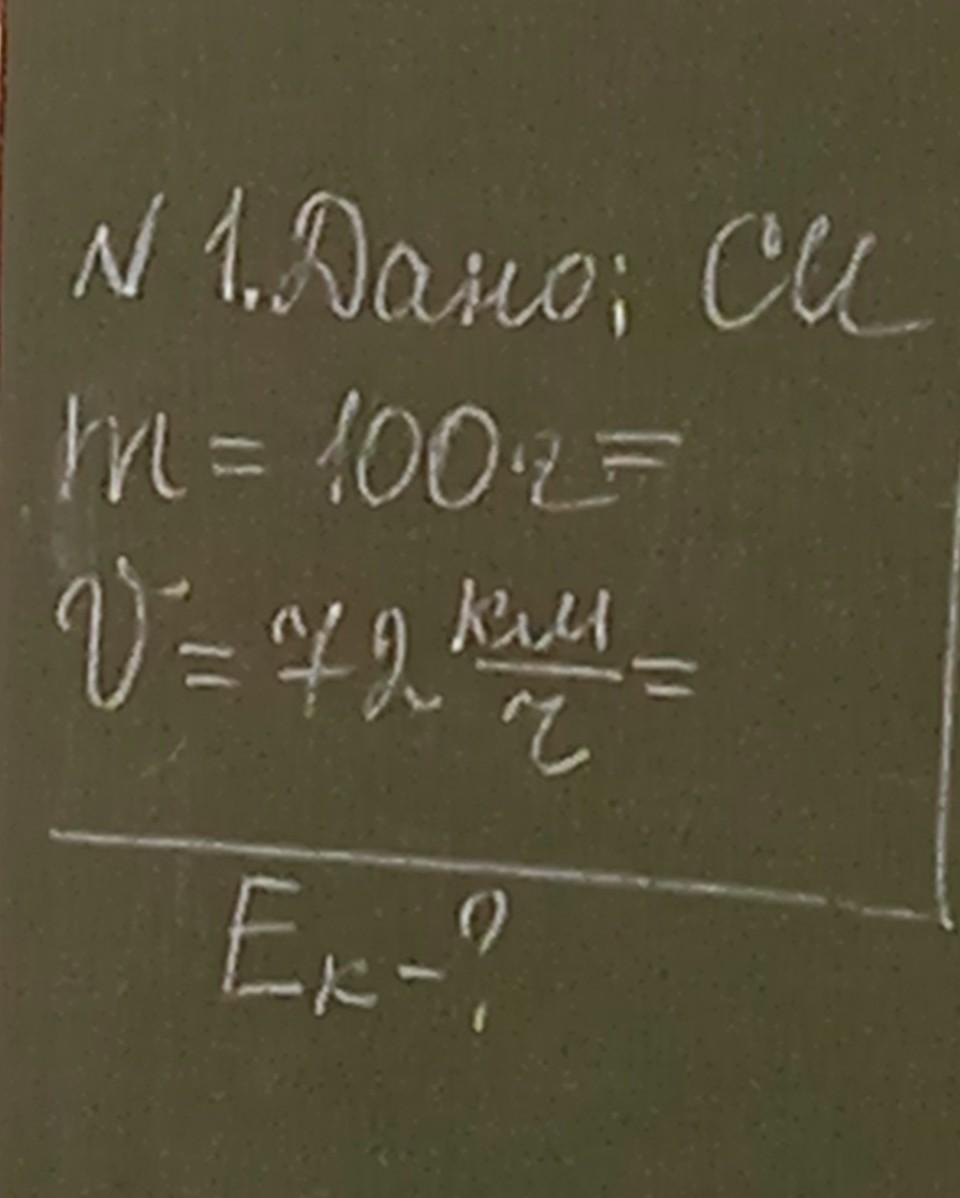 N 1. Дано; СИ
m = 100 г =
V = 72 км/ч =
Eк - ?